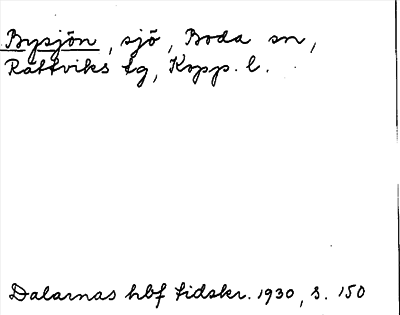 Bysjön, sjö, Boda sn,
Rättviks tg, Kopp. l.
Dalarnas hbf tidskr. 1930, s. 150